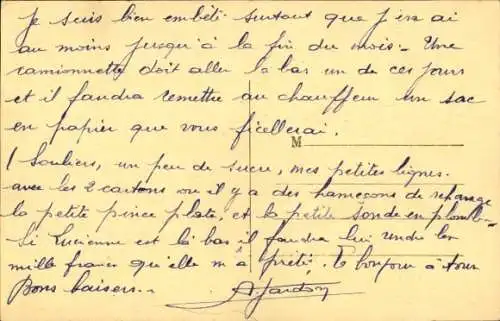 Je suis bien embêté surtout que j'en ai
au moins jusqu'à la fin du mois. Une
camionnette doit aller la bas un de ces jours
et il faudra remettre au chauffeur un sac
en papier que vous ficellerai.
M
1 Souliers, un peu de sucre, mes petites lignes
avec les 2 cartons ou il y a des hameçons de rechange
la petite pince plate, et la petite sonde en plomb.
Si Lucienne est là bas il faudra lui rendre les
mille francs qu'elle m'a prêté. Et bonjour à tous
Bons baisers..